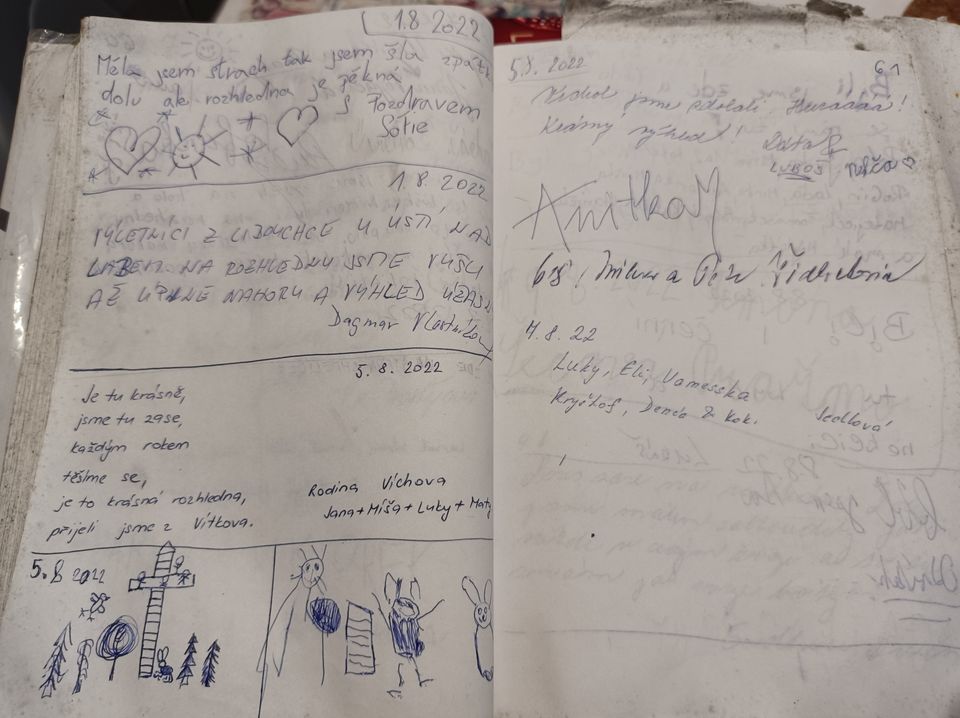 1.8 2022
Měla jsem strach tak jsem šla zpátk
dolu ale rozhledna je pěkná
S Pozdravem
Sofie
1.8. 2022
VÝLETNÍCI Z LIBOUCHCE U ÚSTÍ NAD
LABEM. NA ROZHLEDNU JSME VYŠLI
AŽ ÚPLNĚ NAHORU A VÝHLED ÚŽASN
Dagmar
5.8. 2022
Je tu krásně,
jsme tu zase,
každým rokem
těšíme se,
je to krásná rozhledna,
přijeli jsme z Vítkova.
Rodina Víchova
Jana+Míša+Luky+Maty
5.8 2022
5.8. 2022
61
jsme Huráááá!
Krásný výhled!
LUBOŠ
Anitka
a
7.8.22
Luky, Eli, Vanesska
Kryštof, Denča & Kok.
Sedlová